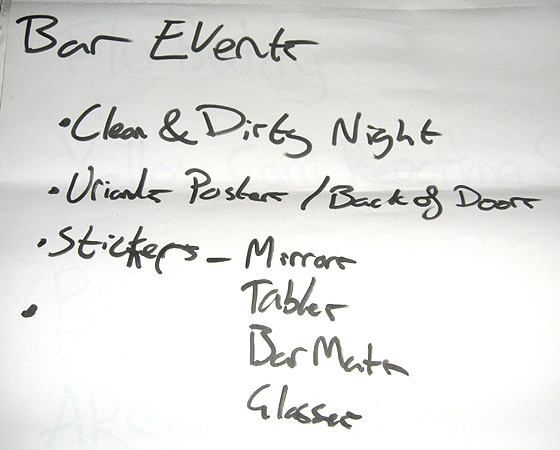 Bar Events
• Clean & Dirty Night
• Urinals Posters / Back of Doors
• Stickers – Mirrors
Tables
Bar Mats
•
Glasses